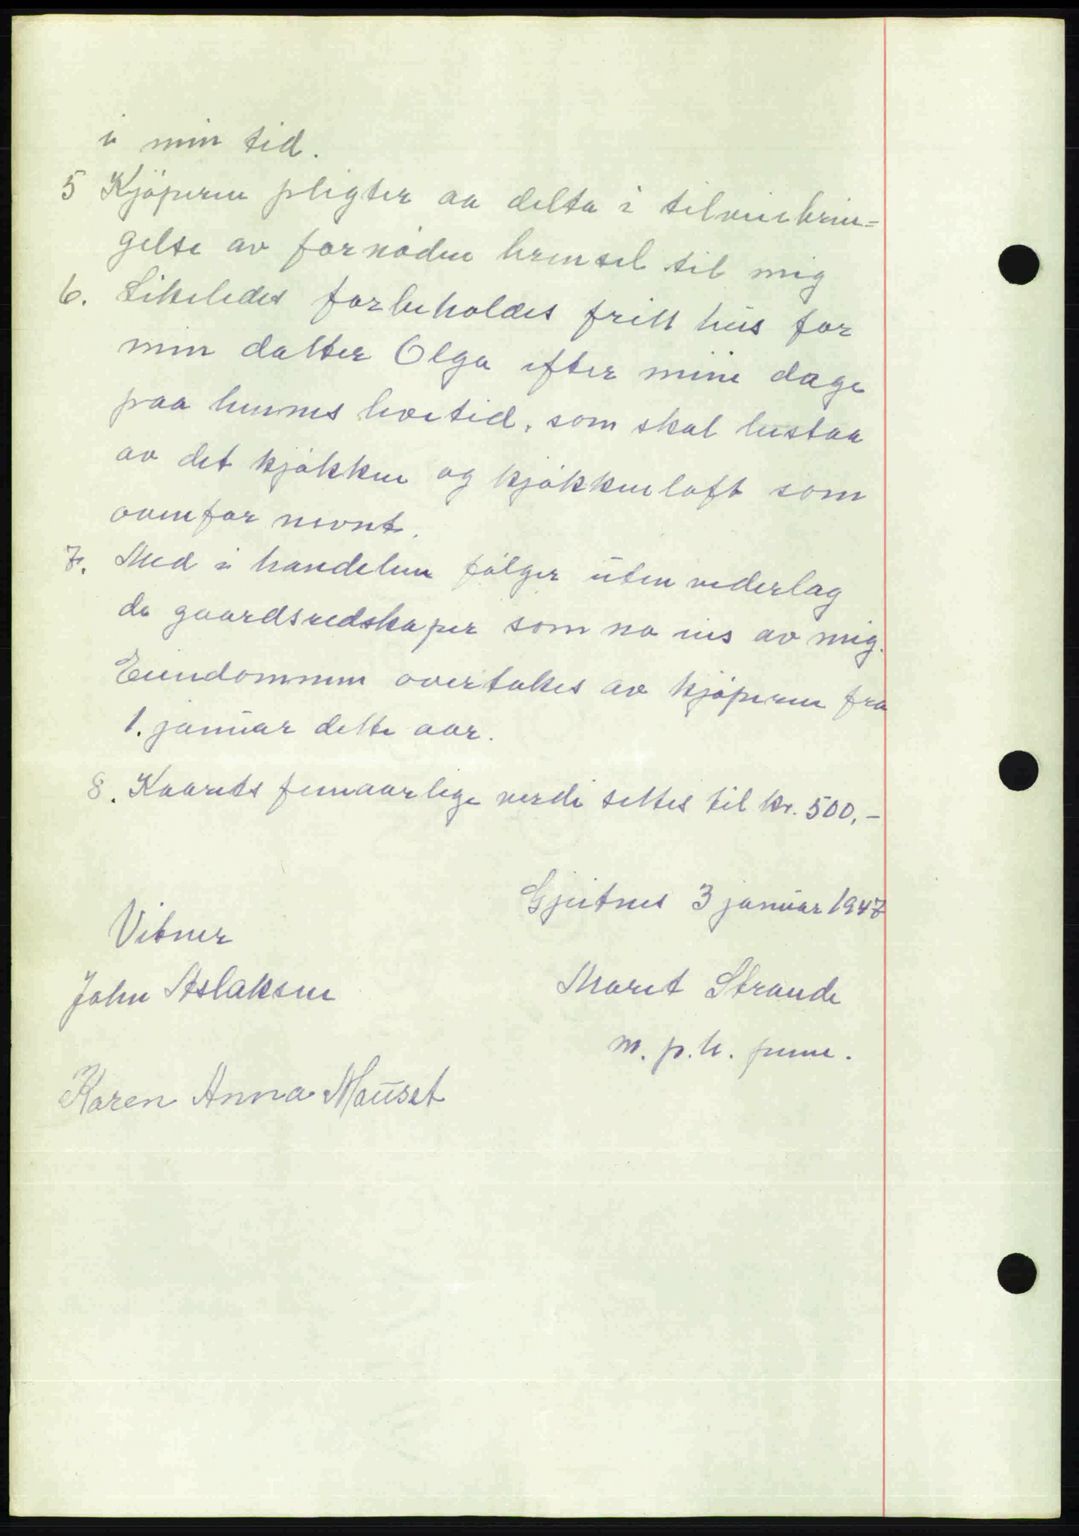 i min tid.
5 Kjøperen pligter aa delta i tilveiebrin=
gelse av fornøden brensel til mig
6. Likeledes forbeholdes fritt hus for
min datter Olga efter mine dage
paa hennes livetid, som skal bestaa
av det kjøkken og kjøkkenloft som
ovenfor nevnt.
7. Med i handelen følger uten vederlag
de gaardsredskaper som no eies av mig.
Eiendommen overtakes av kjøperen fra
1. januar dette aar.
8. Kaarets femaarlige verdi settes til kr. 500,-
Gjeitnes 3 januar 1947
Vitner
John Aslaksen
Marit Strande
m. p. h. penn.
Karen Anna Mauset